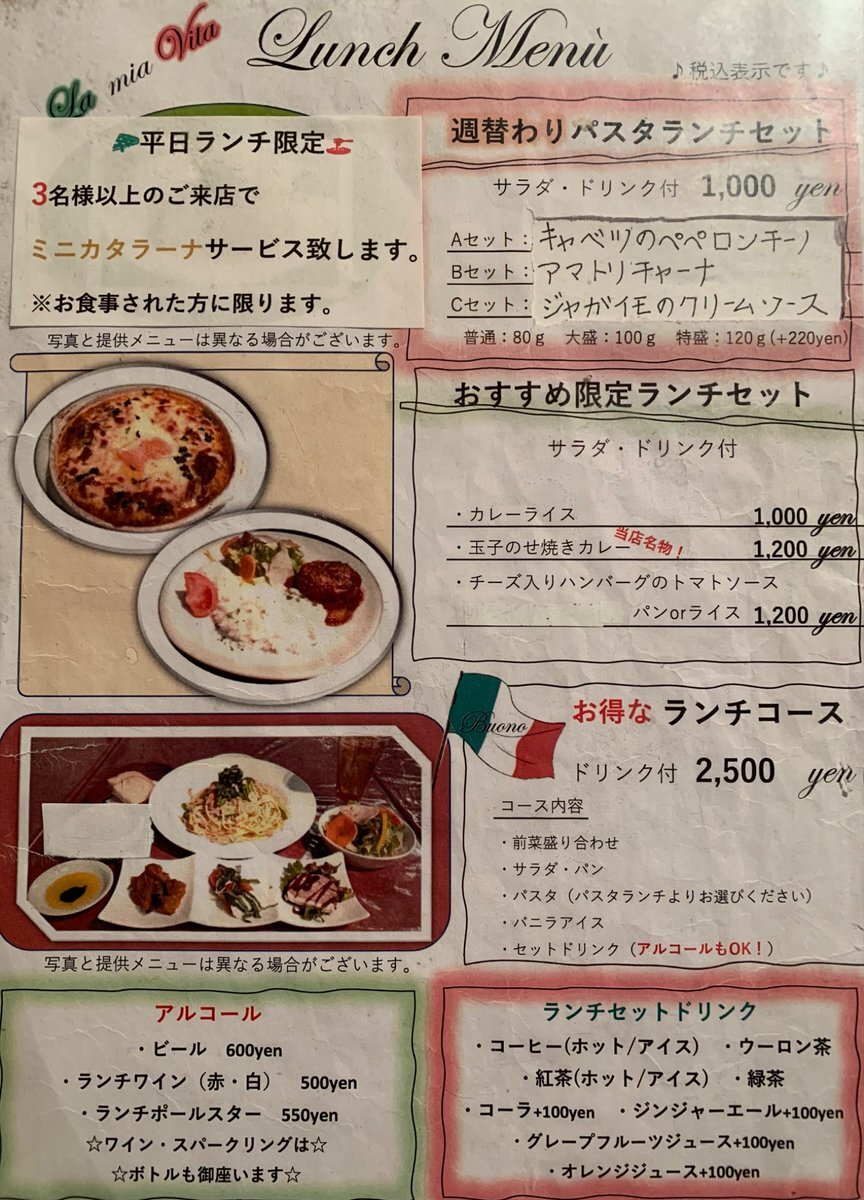 La mia Vita
Lunch Menù
♪税込表示です♪
平日ランチ限定
3名様以上のご来店で
ミニカタラーナサービス致します。
※お食事された方に限ります。
写真と提供メニューは異なる場合がございます。
週替わりパスタランチセット
サラダ・ドリンク付 1,000 yen
Aセット：キャベツのペペロンチーノ
Bセット：アマトリチャーナ
Cセット：ジャガイモのクリームソース
普通：80g 大盛：100g 特盛：120g(+220yen)
おすすめ限定ランチセット
サラダ・ドリンク付
・カレーライス 1,000 yen
・玉子のせ焼きカレー 当店名物！ 1,200 yen
・チーズ入りハンバーグのトマトソース
パンorライス 1,200 yen
Buono
お得な ランチコース
ドリンク付 2,500 yen
コース内容
・前菜盛り合わせ
・サラダ・パン
・パスタ（パスタランチよりお選びください）
・バニラアイス
・セットドリンク（アルコールもOK！）
写真と提供メニューは異なる場合がございます。
アルコール
・ビール 600yen
・ランチワイン（赤・白） 500yen
・ランチポールスター 550yen
☆ワイン・スパークリングは☆
☆ボトルも御座います☆
ランチセットドリンク
・コーヒー(ホット/アイス) ・ウーロン茶
・紅茶(ホット/アイス) ・緑茶
・コーラ+100yen ・ジンジャーエール+100yen
・グレープフルーツジュース+100yen
・オレンジジュース+100yen